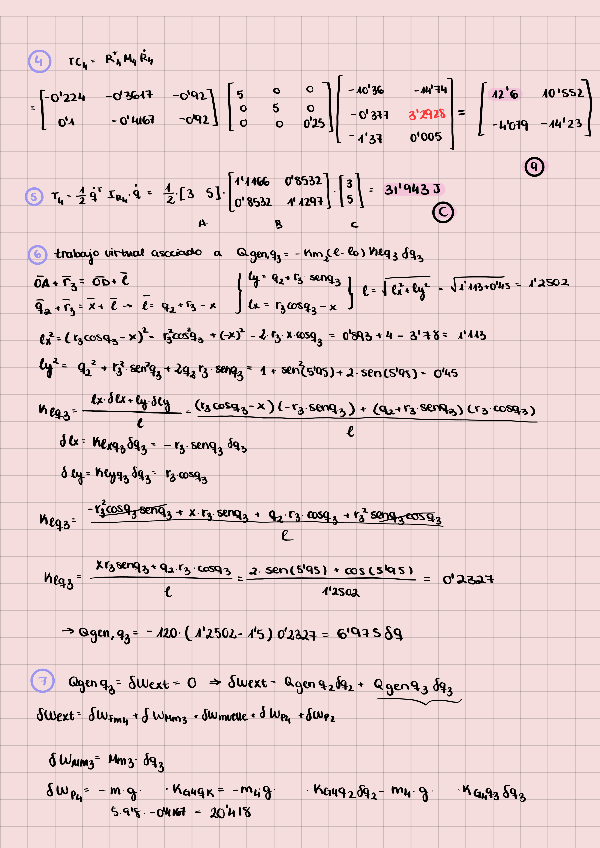 4 TC4 = R4ᵀ M4 Ṙ4
= [-0'224 -0'3617 -0'92] [5 0 0] [-10'36 -14'74] = [12'6 10'552]
[0'1 -0'4167 -0'92] [0 5 0] [-0'377 3'2928] [-4'079 -14'23]
[0 0 0'25] [-1'37 0'005]
a
5 T4 = 1/2 q̇ᵀ I_R4 · q̇ = 1/2 · [3 5] · [1'1166 0'8532 / 0'8532 1'1297] · [3 / 5] = 31'943 J
A B C
C
6 trabajo virtual asociado a Qgen,q3 = -Km2(l-l0) Klq3 δq3
OA + r3 = OD + l
q2 + r3 = x + l → l = q2 + r3 - x
ly = q2 + r3 senq3
lx = r3 cosq3 - x
l = √(lx² + ly²) = √(1'113+0'45) = 1'2502
lx² = (r3 cosq3 - x)² = r3² cos²q3 + (-x)² - 2·r3·x·cosq3 = 0'893 + 4 - 3'78 = 1'113
ly² = q2² + r3²·sen²q3 + 2q2 r3·senq3 = 1 + sen²(5'95) + 2·sen(5'95) = 0'45
Klq3 = (lx·δlx + ly·δly)/l = ((r3 cosq3 - x)(-r3·senq3) + (q2 + r3·senq3)(r3 cosq3))/l
δlx = Klxq3 δq3 = -r3·senq3 δq3
δly = Klyq3 δq3 = r3·cosq3
Klq3 = (-r3² cosq3 senq3 + x·r3·senq3 + q2·r3·cosq3 + r3² senq3 cosq3)/l
Klq3 = (x r3 senq3 + q2·r3·cosq3)/l = (2·sen(5'95) + cos(5'95))/1'2502 = 0'2327
→ Qgen,q3 = -120·(1'2502 - 1'5) 0'2327 = 6'975 δq
7 Qgen q3 = δWext = 0 ⇒ δWext = Qgen q2 δq2 + Qgen q3 δq3
δWext = δWFm4 + δWMm3 + δWmuelle + δWP4 + δWP2
δWMm3 = Mm3·δq3
δWP4 = -m·g ·KG4qK = -m4·g ·KG4q2 δq2 - m4·g ·KG4q3 δq3
5·9'8·-0'4167 = 20'418